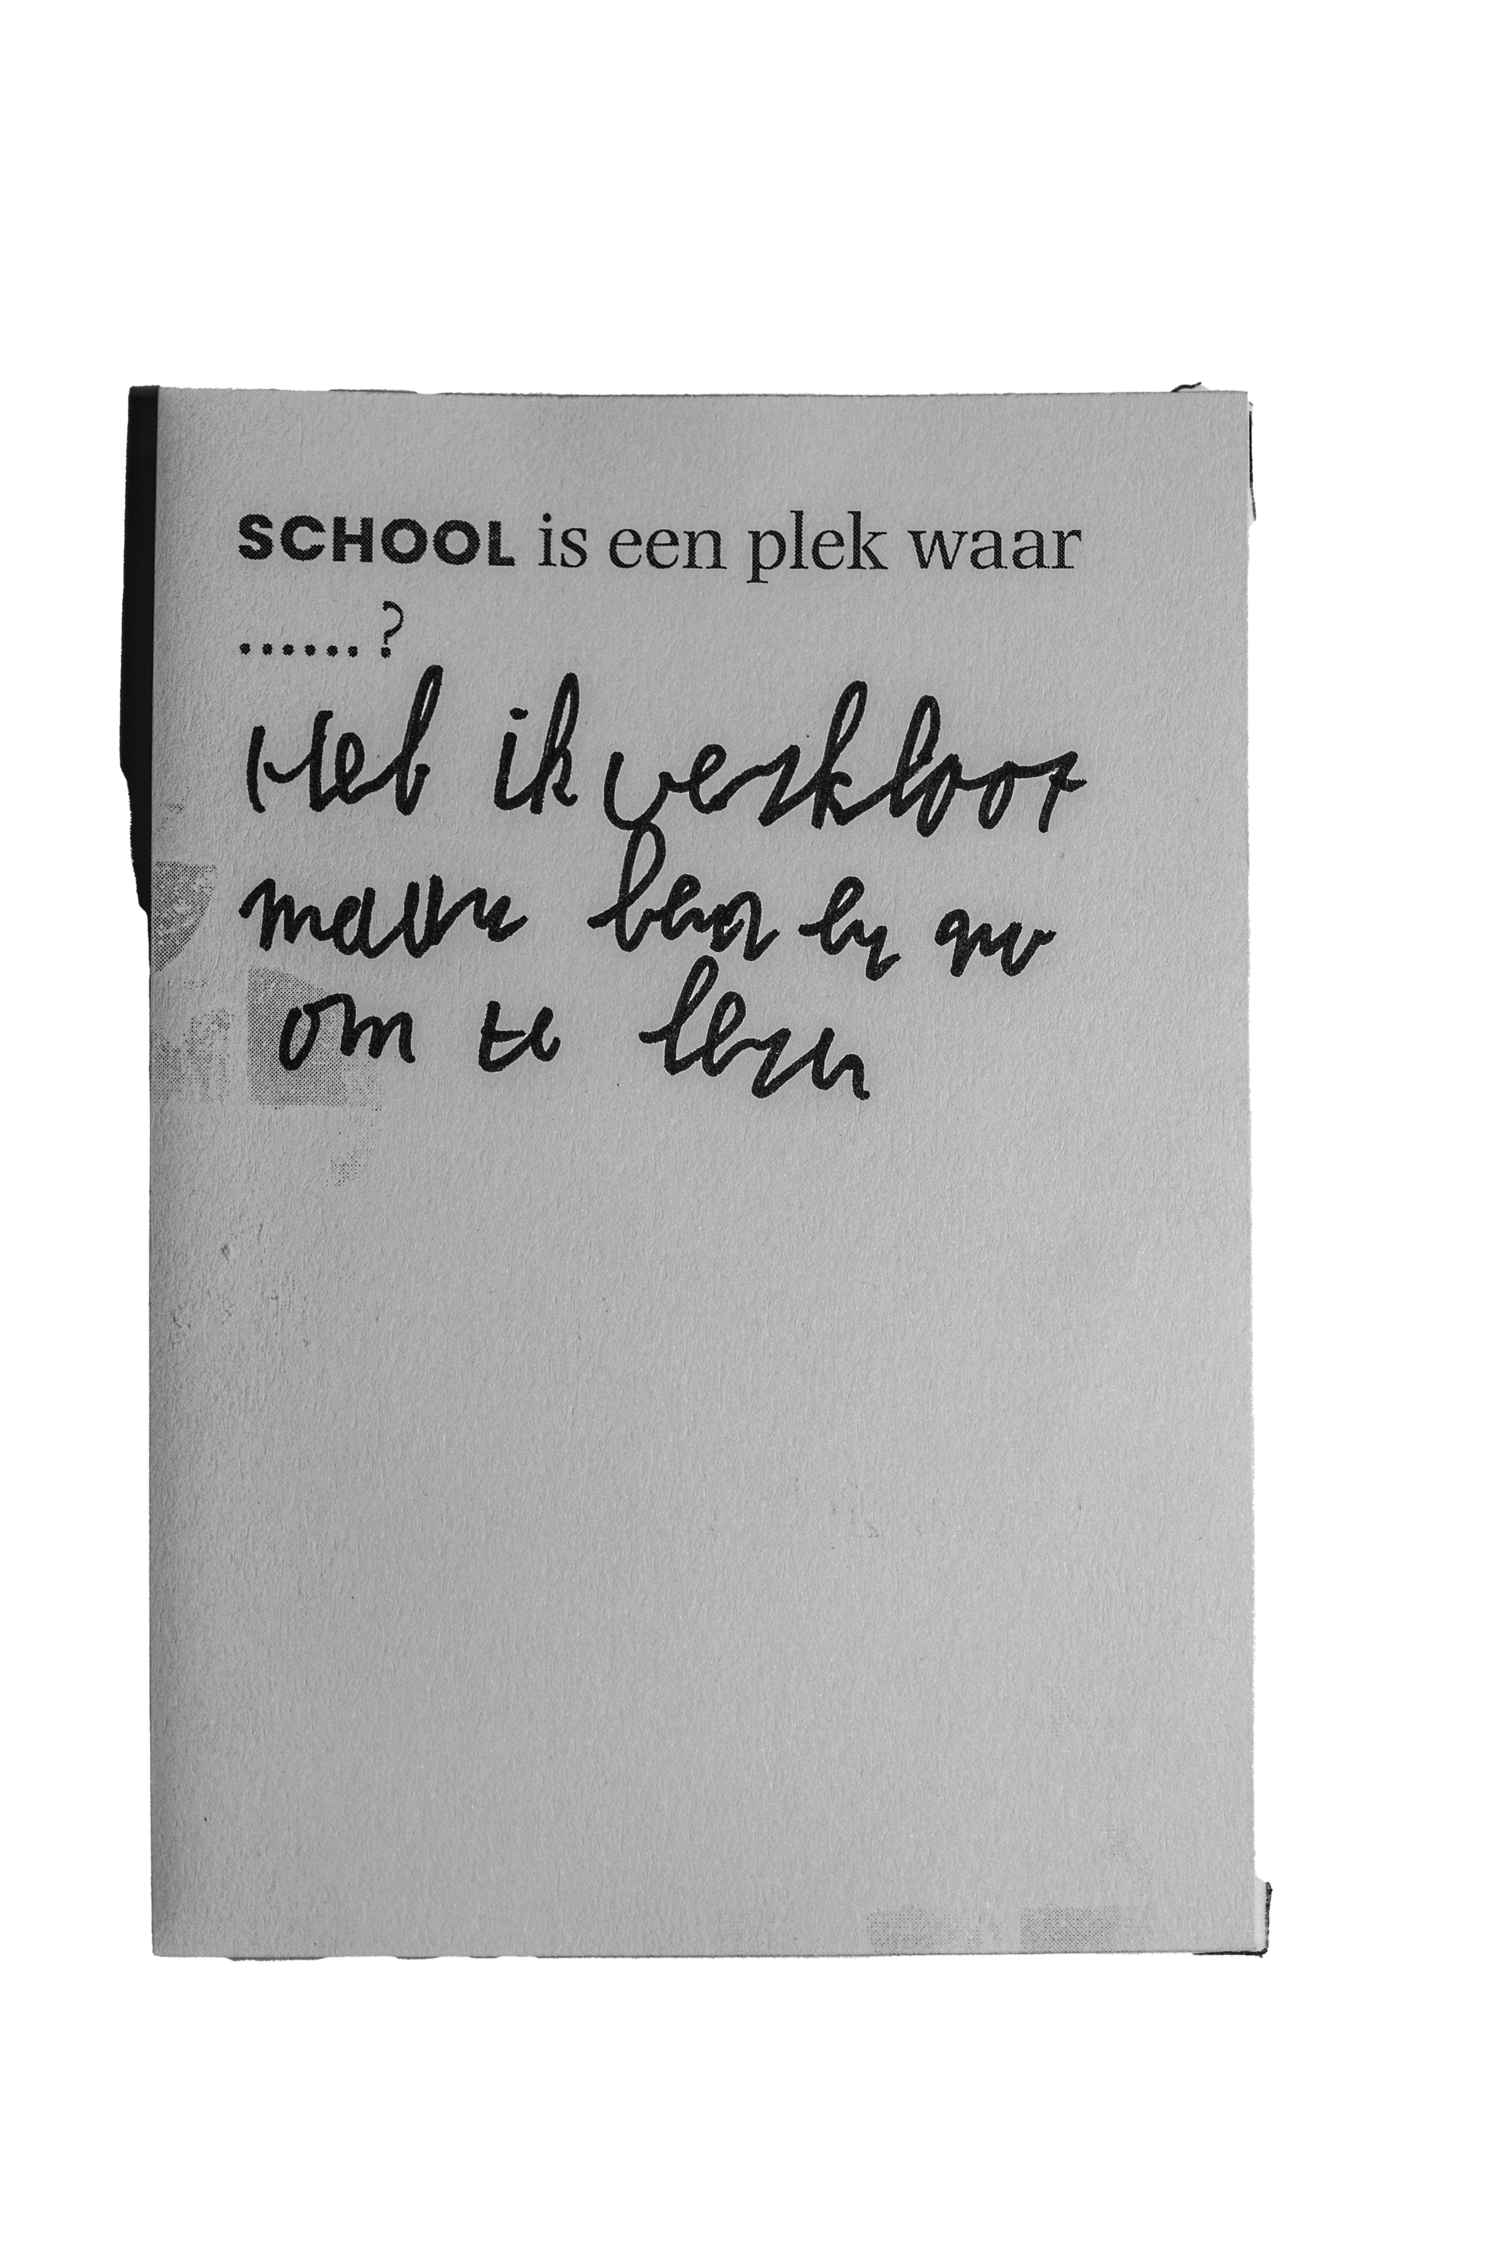 SCHOOL is een plek waar
......?
Heb ik verkloot
maar ben er nu
om te leren